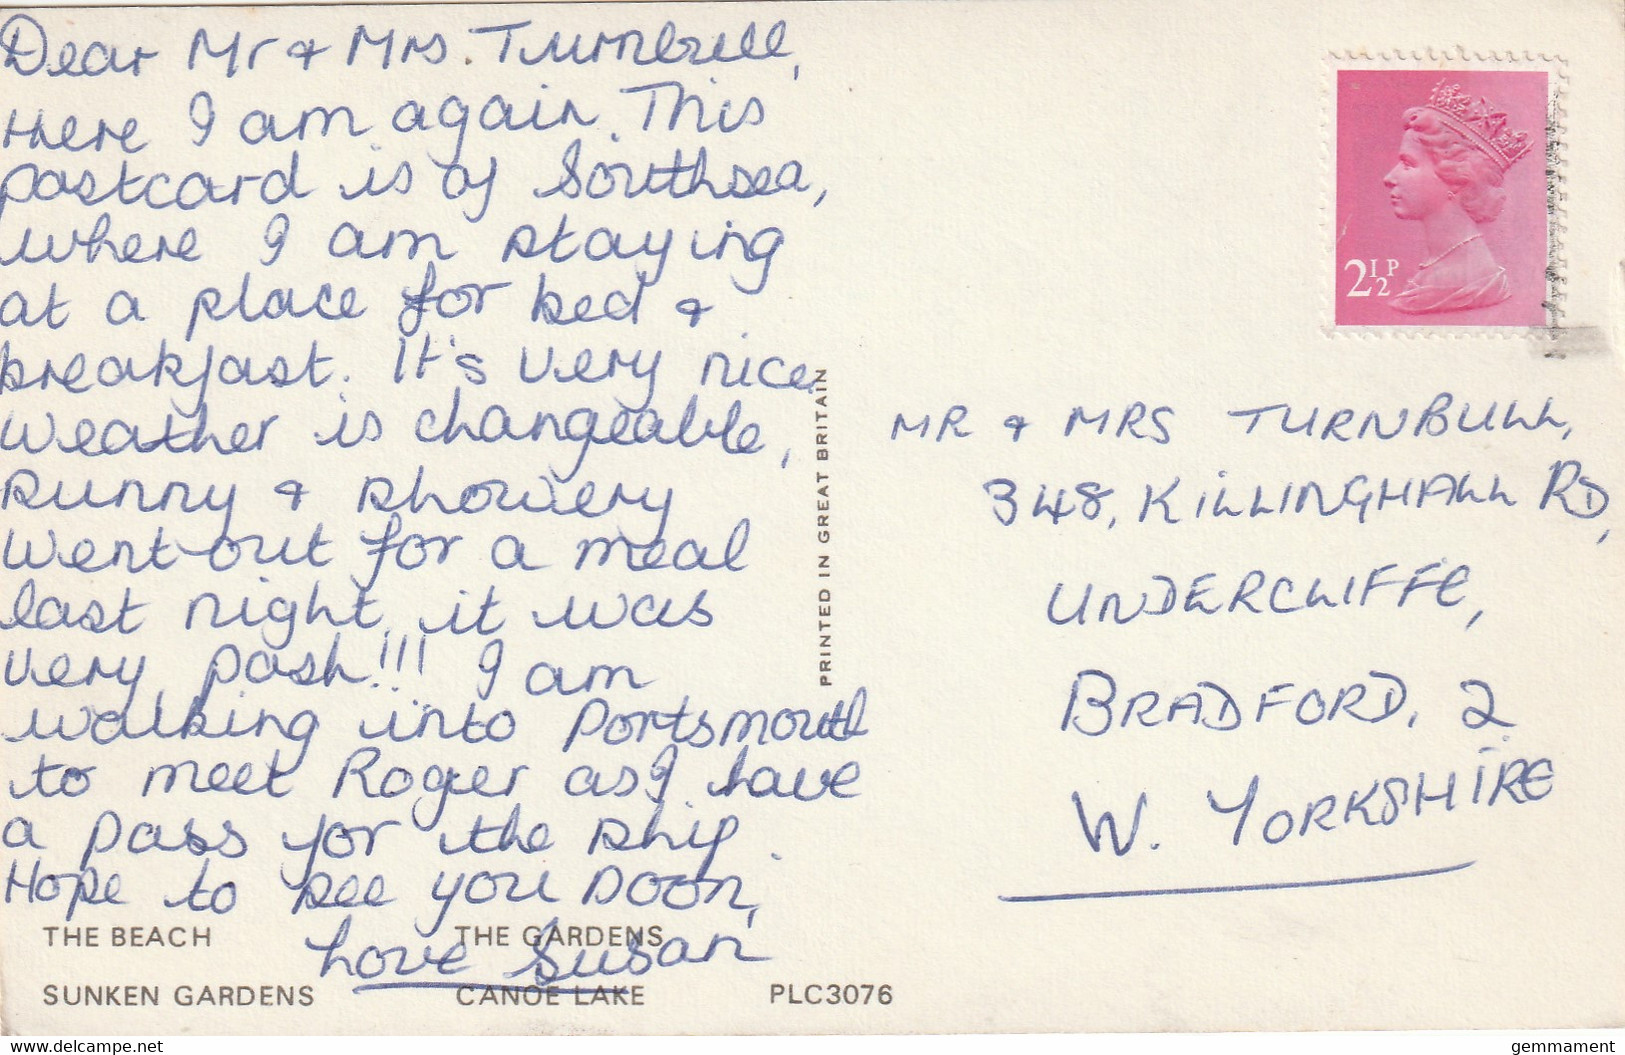 Dear Mr & Mrs. Turnbull,
Here I am again. This
postcard is of Southsea,
where I am staying
at a place for bed &
breakfast. It's very nice.
Weather is changeable,
sunny & showery
Went out for a meal
last night, it was
very posh!!! I am
walking into Portsmouth
to meet Roger as I have
a pass for the ship.
Hope to see you soon,
Love Susan
THE BEACH THE GARDENS
SUNKEN GARDENS CANOE LAKE PLC3076
PRINTED IN GREAT BRITAIN
2½P
MR & MRS TURNBULL,
348, KILLINGHALL RD,
UNDERCLIFFE,
BRADFORD, 2
W. YORKSHIRE
www.delcampe.net gemmament